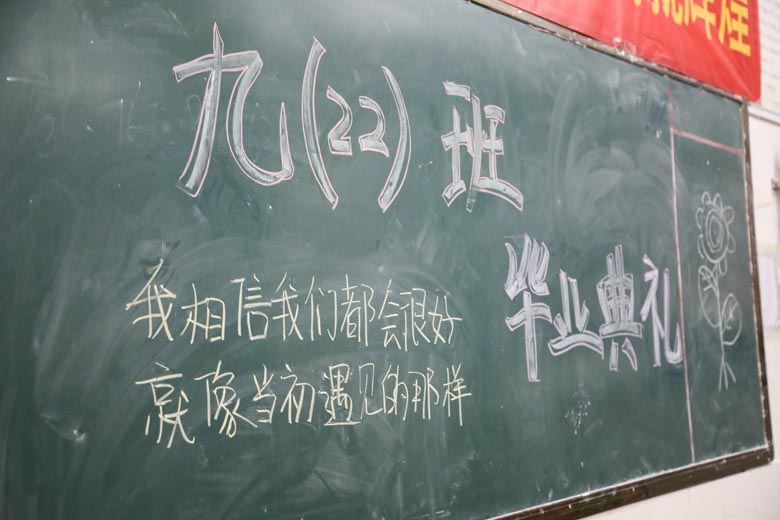 九(22)班
毕业典礼
我相信我们都会很好
就像当初遇见的那样
辉煌